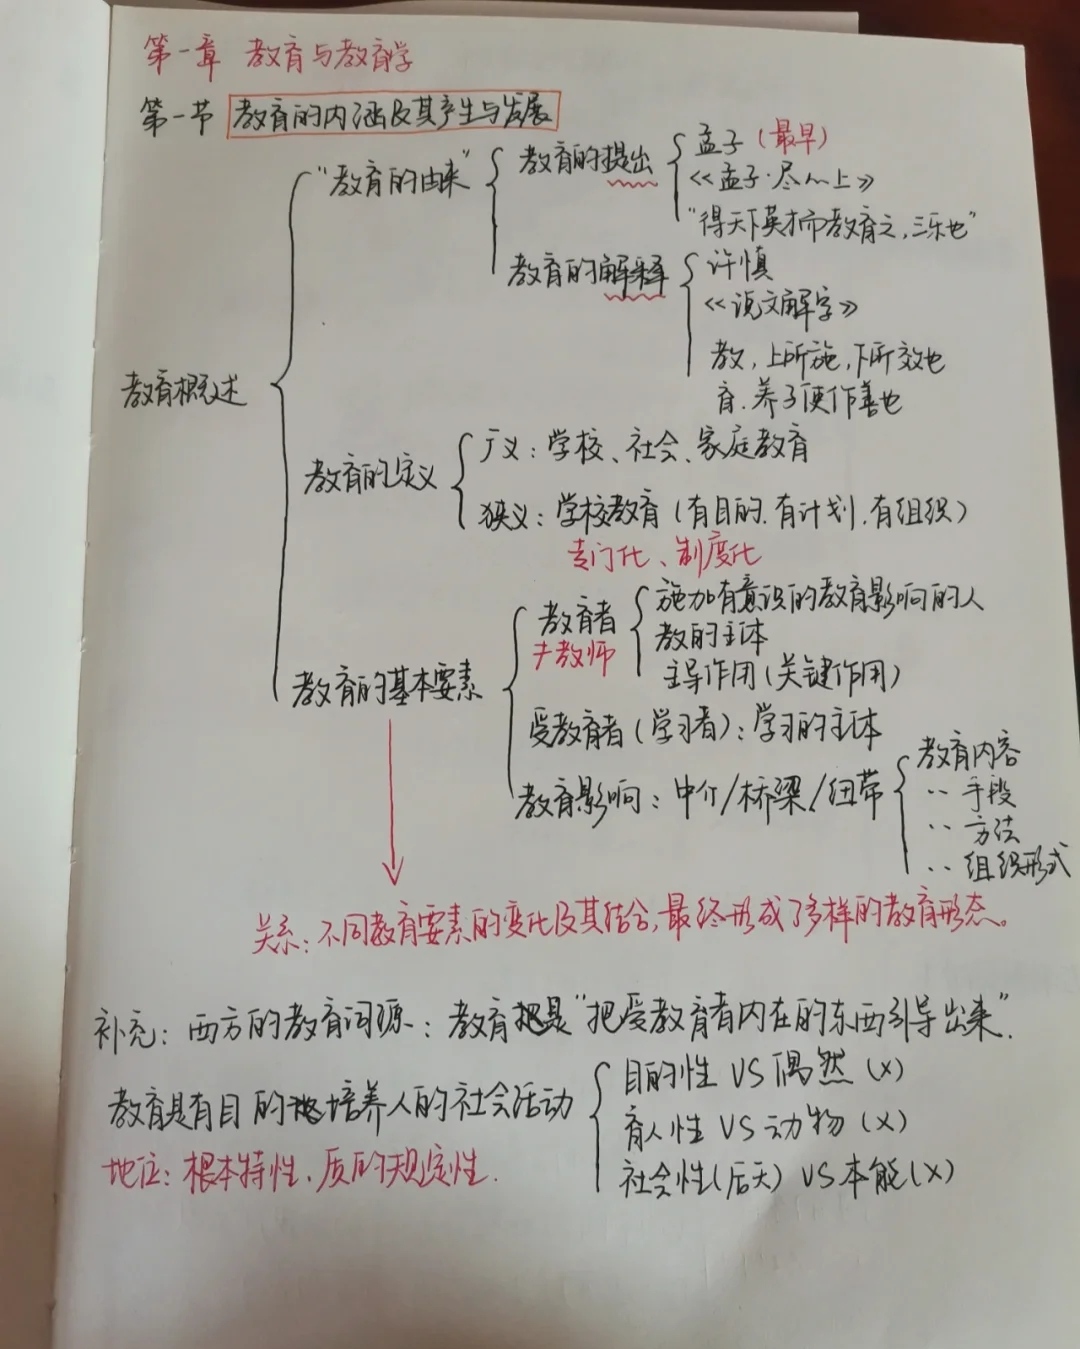 第一章 教育与教育学
第一节 教育的内涵及其产生与发展
"教育的由来"
教育的提出
孟子(最早)
《孟子·尽心上》
"得天下英才而教育之,三乐也"
教育的解释
许慎
《说文解字》
教,上所施,下所效也
育.养子使作善也
教育概述
教育的定义
广义:学校、社会、家庭教育
狭义:学校教育(有目的.有计划.有组织)
专门化、制度化
教育的基本要素
教育者
≠教师
施加有意识的教育影响的人
教的主体
主导作用(关键作用)
受教育者(学习者):学习的主体
教育影响:中介/桥梁/纽带
教育内容
‥ 手段
‥ 方法
‥ 组织形式
关系:不同教育要素的变化及其结合,最终形成了多样的教育形态。
补充:西方的教育词源:教育是"把受教育者内在的东西引导出来".
教育是有目的地培养人的社会活动
目的性 VS 偶然(X)
育人性 VS 动物(X)
社会性(后天) VS 本能(X)
地位:根本特性、质的规定性.